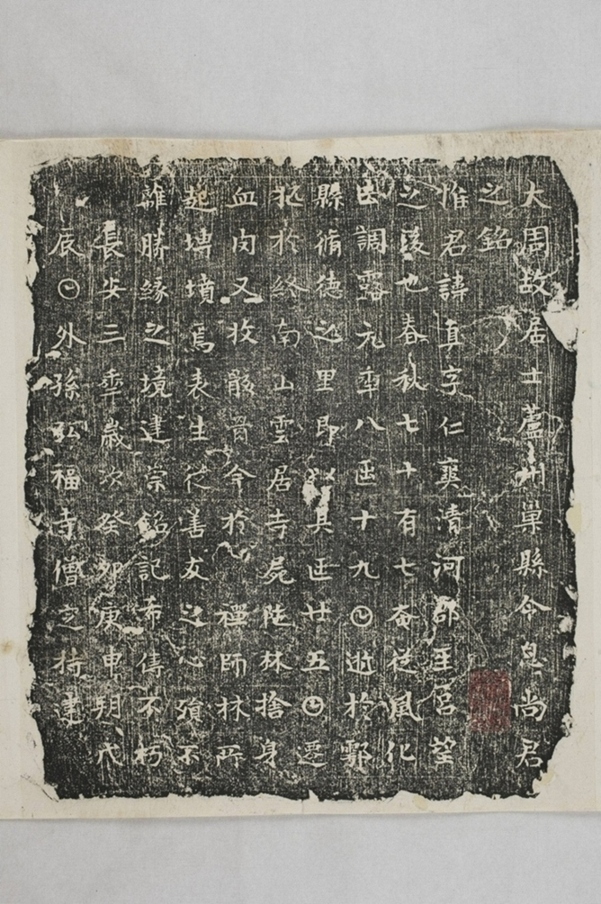 大周故居士蘆州巢縣令息尚君
之銘
惟君諱真字仁爽清河郡𤯔呂望
之後也春秋七十有七奄從風化
調露元秊八𠥱十九𡆠逝於鄠
縣脩德之里即其𠥱廿五𡆠遷
柩於終南山雲居寺屍陁林捨身
血肉又收骸骨今於禪師林所
起塼墳焉表生從善友之心殞不
離勝緣之境建崇銘記希傳不朽
長安三秊歲次癸卯庚申朔戊
辰𡆠外孫弘福寺僧定持建